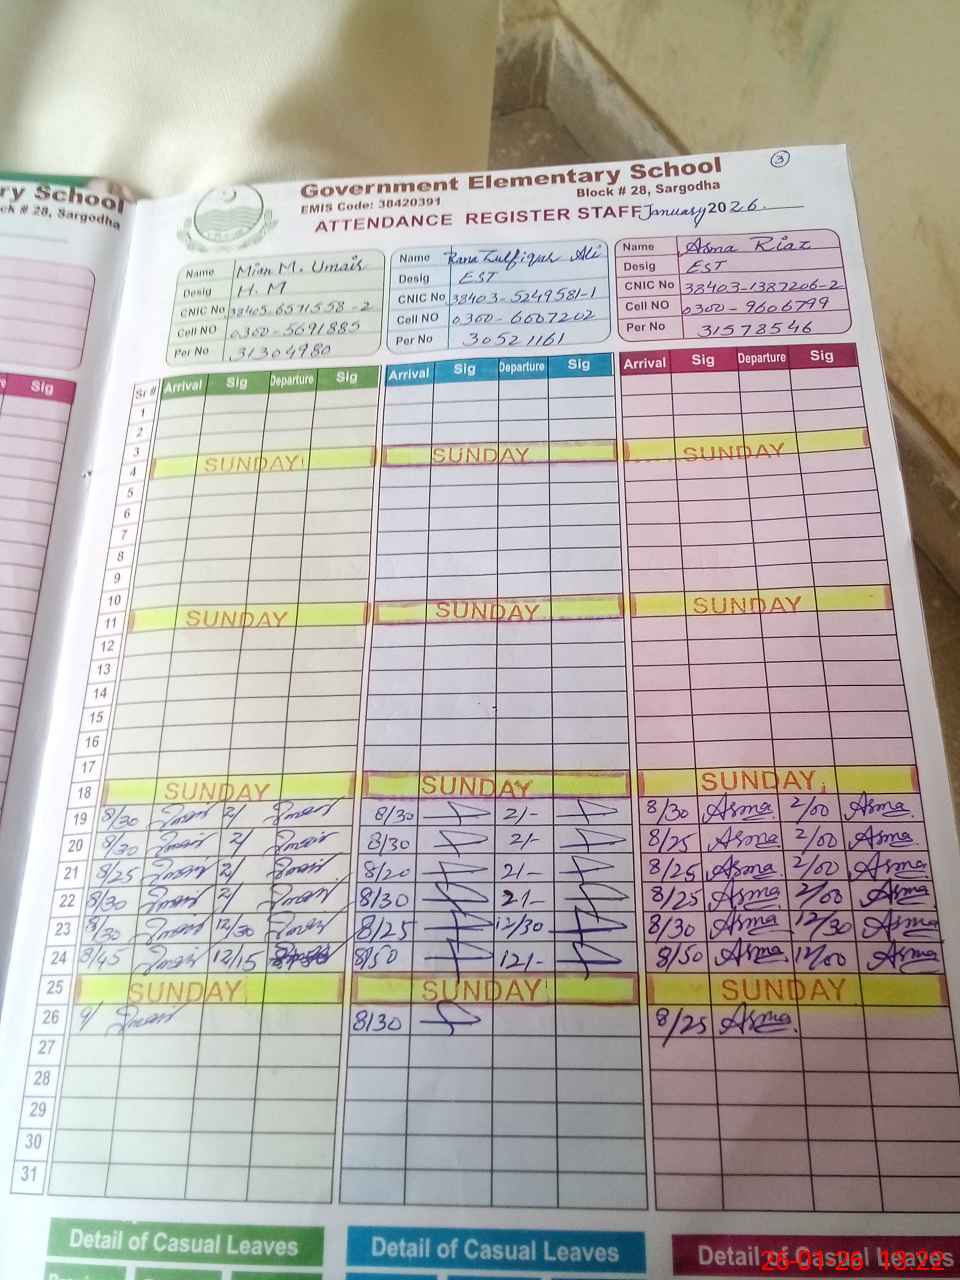 ry School
ck # 28, Sargodha
Sig
Government Elementary School
3
EMIS Code: 38420391
Block # 28, Sargodha
ATTENDANCE REGISTER STAFF January 2026
Name Mian M. Umais
Desig H.M
CNIC No 38405-6571558-2
Cell NO 0300-5691885
Per No 31304980
Name Rana Zulfiqar Ali
Desig EST
CNIC No 38403-5249581-1
Cell NO 0300-6607202
Per No 30521161
Name Asma Riaz
Desig EST
CNIC No 38403-1387206-2
Cell NO 0300-9606799
Per No 31578546
Sr # Arrival Sig Departure Sig Arrival Sig Departure Sig Arrival Sig Departure Sig
1
2
3
4 SUNDAY SUNDAY SUNDAY
5
6
7
8
9
10
11 SUNDAY SUNDAY SUNDAY
12
13
14
15
16
17
18 SUNDAY SUNDAY SUNDAY
19 8/30 2/ 8/30 2/- 8/30 Asma 2/00 Asma
20 8/30 2/ 8/30 2/- 8/25 Asma 2/00 Asma
21 8/25 2/ 8/20 2/- 8/25 Asma 2/00 Asma
22 8/30 2/ 8/30 2/- 8/25 Asma 2/00 Asma
23 8/30 12/30 8/25 12/30 8/30 Asma 12/30 Asma
24 8/45 12/15 8/50 12/- 8/50 Asma 12/00 Asma
25 SUNDAY SUNDAY SUNDAY
26 9/ 8/30 8/25 Asma
27
28
29
30
31
Detail of Casual Leaves Detail of Casual Leaves Detail of Casual Leaves
26-01-26 13:22